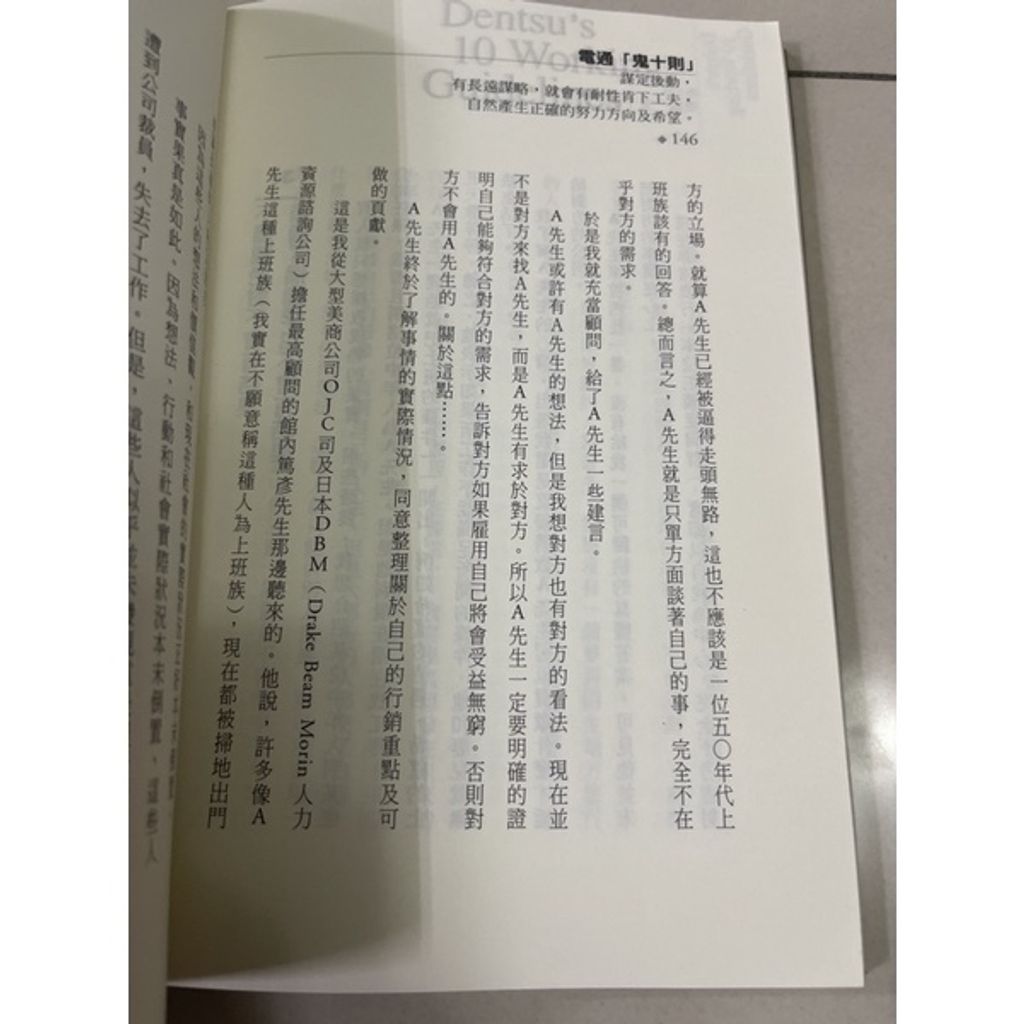 Dentsu's
10 Working
Guidelines
電通「鬼十則」
謀定後動，
有長遠謀略，就會有耐性肯下工夫，
自然產生正確的努力方向及希望。
◆146
方的立場。就算A先生已經被逼得走頭無路，這也不應該是一位五〇年代上
班族該有的回答。總而言之，A先生就是只單方面談著自己的事，完全不在
乎對方的需求。
於是我就充當顧問，給了A先生一些建言。
A先生或許有A先生的想法，但是我想對方也有對方的看法。現在並
不是對方來找A先生，而是A先生有求於對方。所以A先生一定要明確的證
明自己能夠符合對方的需求，告訴對方如果雇用自己將會受益無窮。否則對
方不會用A先生的。關於這點……。
A先生終於了解事情的實際情況，同意整理關於自己的行銷重點及可
做的貢獻。
這是我從大型美商公司OJC司及日本DBM（Drake Beam Morin人力
資源諮詢公司）擔任最高顧問的館內篤彥先生那邊聽來的。他說，許多像A
先生這種上班族（我實在不願意稱這種人為上班族），現在都被掃地出門
事實果真是如此。因為想法、行動和社會實際狀況本末倒置，這些人
遭到公司裁員，失去了工作。但是，這些人似乎並未